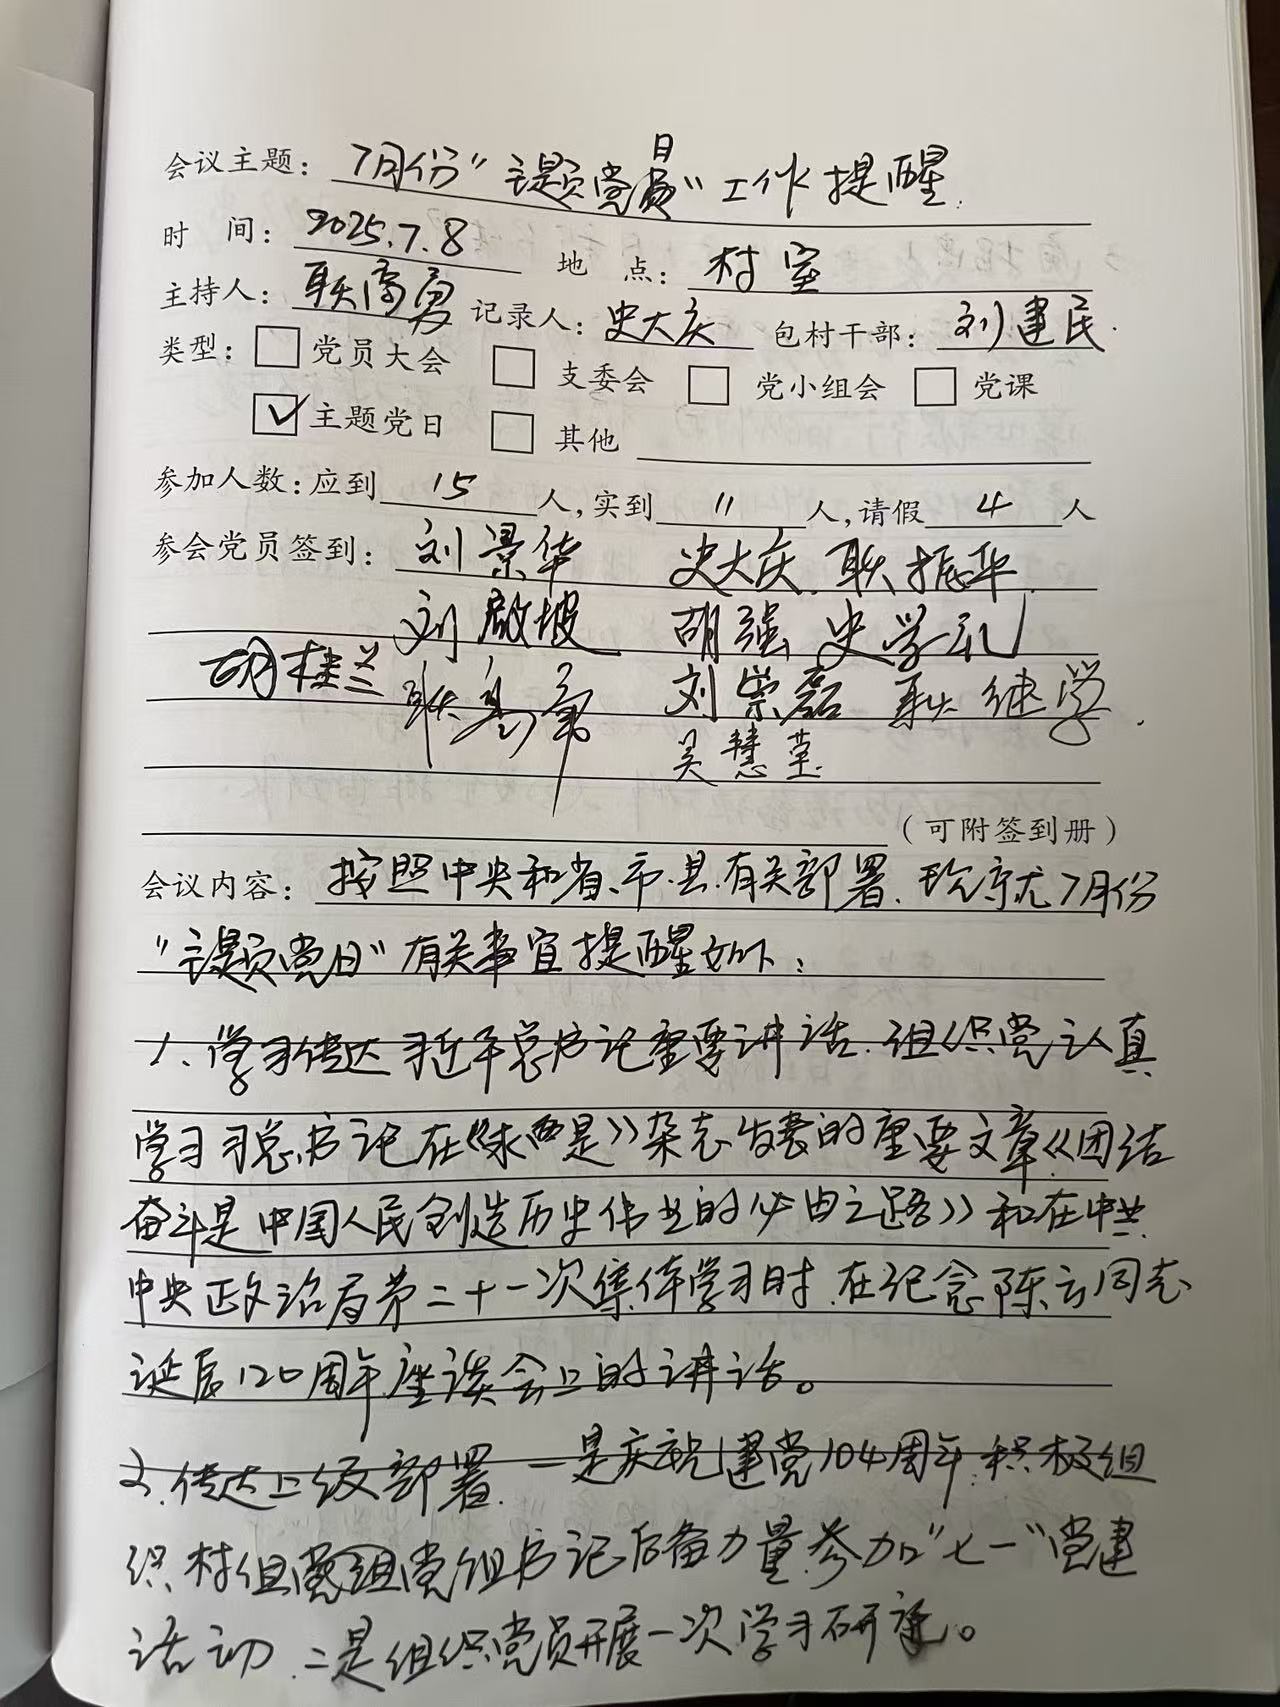 会议主题：7月份“主题党日”工作提醒.
时 间：2025.7.8 地 点：村室
主持人：耿高勇 记录人：史大庆 包村干部：刘建民.
类型：□党员大会 □支委会 □党小组会 □党课
☑主题党日 □其他
参加人数：应到 15 人，实到 11 人，请假 4 人
参会党员签到：刘景华 史大庆 耿振华
刘啟坡 胡强 史学礼
胡桂兰 耿高勇 刘崇磊 耿继学
吴慧莹
（可附签到册）
会议内容：按照中央和省、市.县.有关部署.现就7月份
“主题党日”有关事宜提醒如下：
1、学习传达习近平总书记重要讲话.组织党认真
学习习总书记在《求是》杂志发表的重要文章《团结
奋斗是中国人民创造历史伟业的必由之路》和在中共
中央政治局第二十一次集体学习时.在纪念陈云同志
诞辰120周年座谈会上的讲话。
2.传达上级部署.一是庆祝建党104周年.积极组
织村组党组书记后备力量参加“七一”党建
活动.二是组织党员开展一次学习研